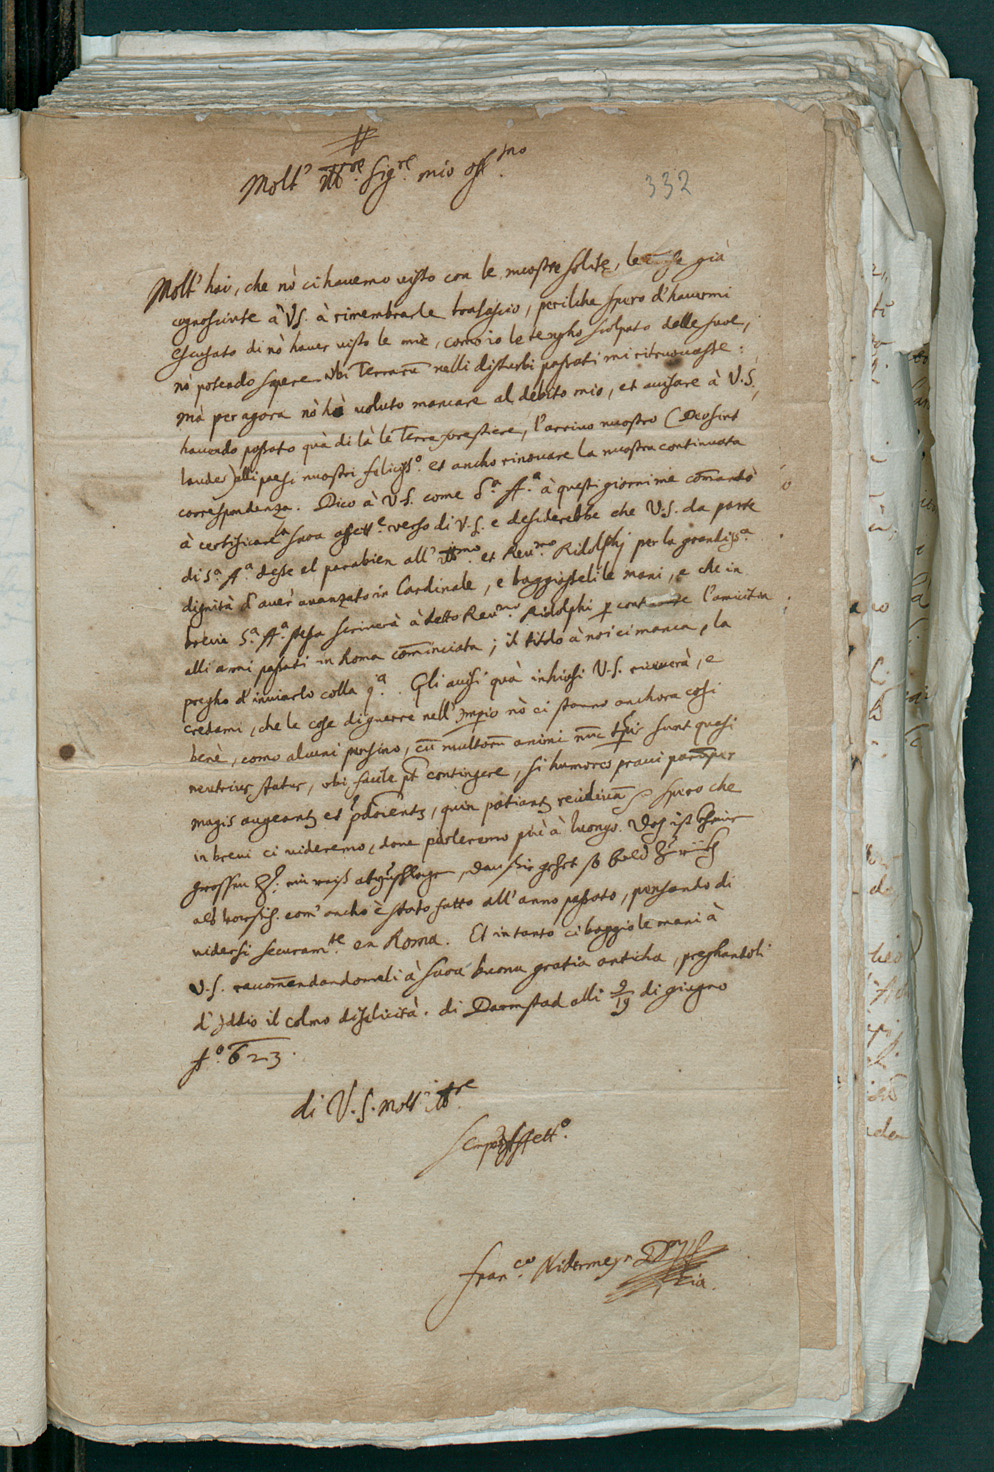 Molt.º Ill.re Sig.re mio oss.mo
332
Molt' hai, che nò ci havemo visto con le nuostre solite, le già
cognoscivte à V.S. à rimembrarle trasascio, perilche spero d'havermi
escusato di nò haver visto le miè, como io le tengho scolpato delle sue,
nò potendo sapere ubi Terrarū nelli disturbi passati mi ritruovasse:
mà per agora nò hò voluto mancare al debito mio, et avisare à V.S.
havendo passato quà di là le Terre forastiere, l'arrivo nuostro (Deo sint
laudes) alli paesi nuostri felicis.º et ancho rinovare la nuostra continuata
correspondenza. Dico à V.S. come S.ª A.ª à questi giorni me comandò
à certificarl.ª sua affett.e verso di V.S. e desiderebbe che V.S. da parte
di S.ª A.ª desse el parabien all' Ill.mo et Rev.mo Ridolphj per la grandis.ª
dignità d'aver' avanzato in Cardinale, e baggiasteli le mani, e che in
brevia S.ª A.ª stessa scriverà à detto Rev.mo Ridolphi p l'amicitia
alli anni passati in Roma cominciata; il titolo à noi ci manca, la
pregho d'inviarlo colla q.ª. Gli avisi quà inhiusi V.S. riceverà, e
credami, che le cose di guerre nell' Impio nò ci stanno anchora così
benè, como alcuni pensino, cū multorū animi nūc sunt quasi
neutrius status, ubi facile pt contingere, si humores pravi
magis augeant et, quin patiant recidivā. Spero che
in brevi ci videremo, dove parleremo più à luongo. Das ist
grossen so bald
als com' ancho è stato fatto all' anno passato, pensando di
vidersi securam.te en Roma. Et in tanto ci baggio le mani à
V.S. racomendandomeli à suoà buona gratia anticha, preghandoli
d'Iddio il colmo di felicità. di Darmstad alli 9/19 di giugno
A.º 623.
di V.S. Molt' Ill.re
Semp Affett.º
Fran.co Nidermeyr